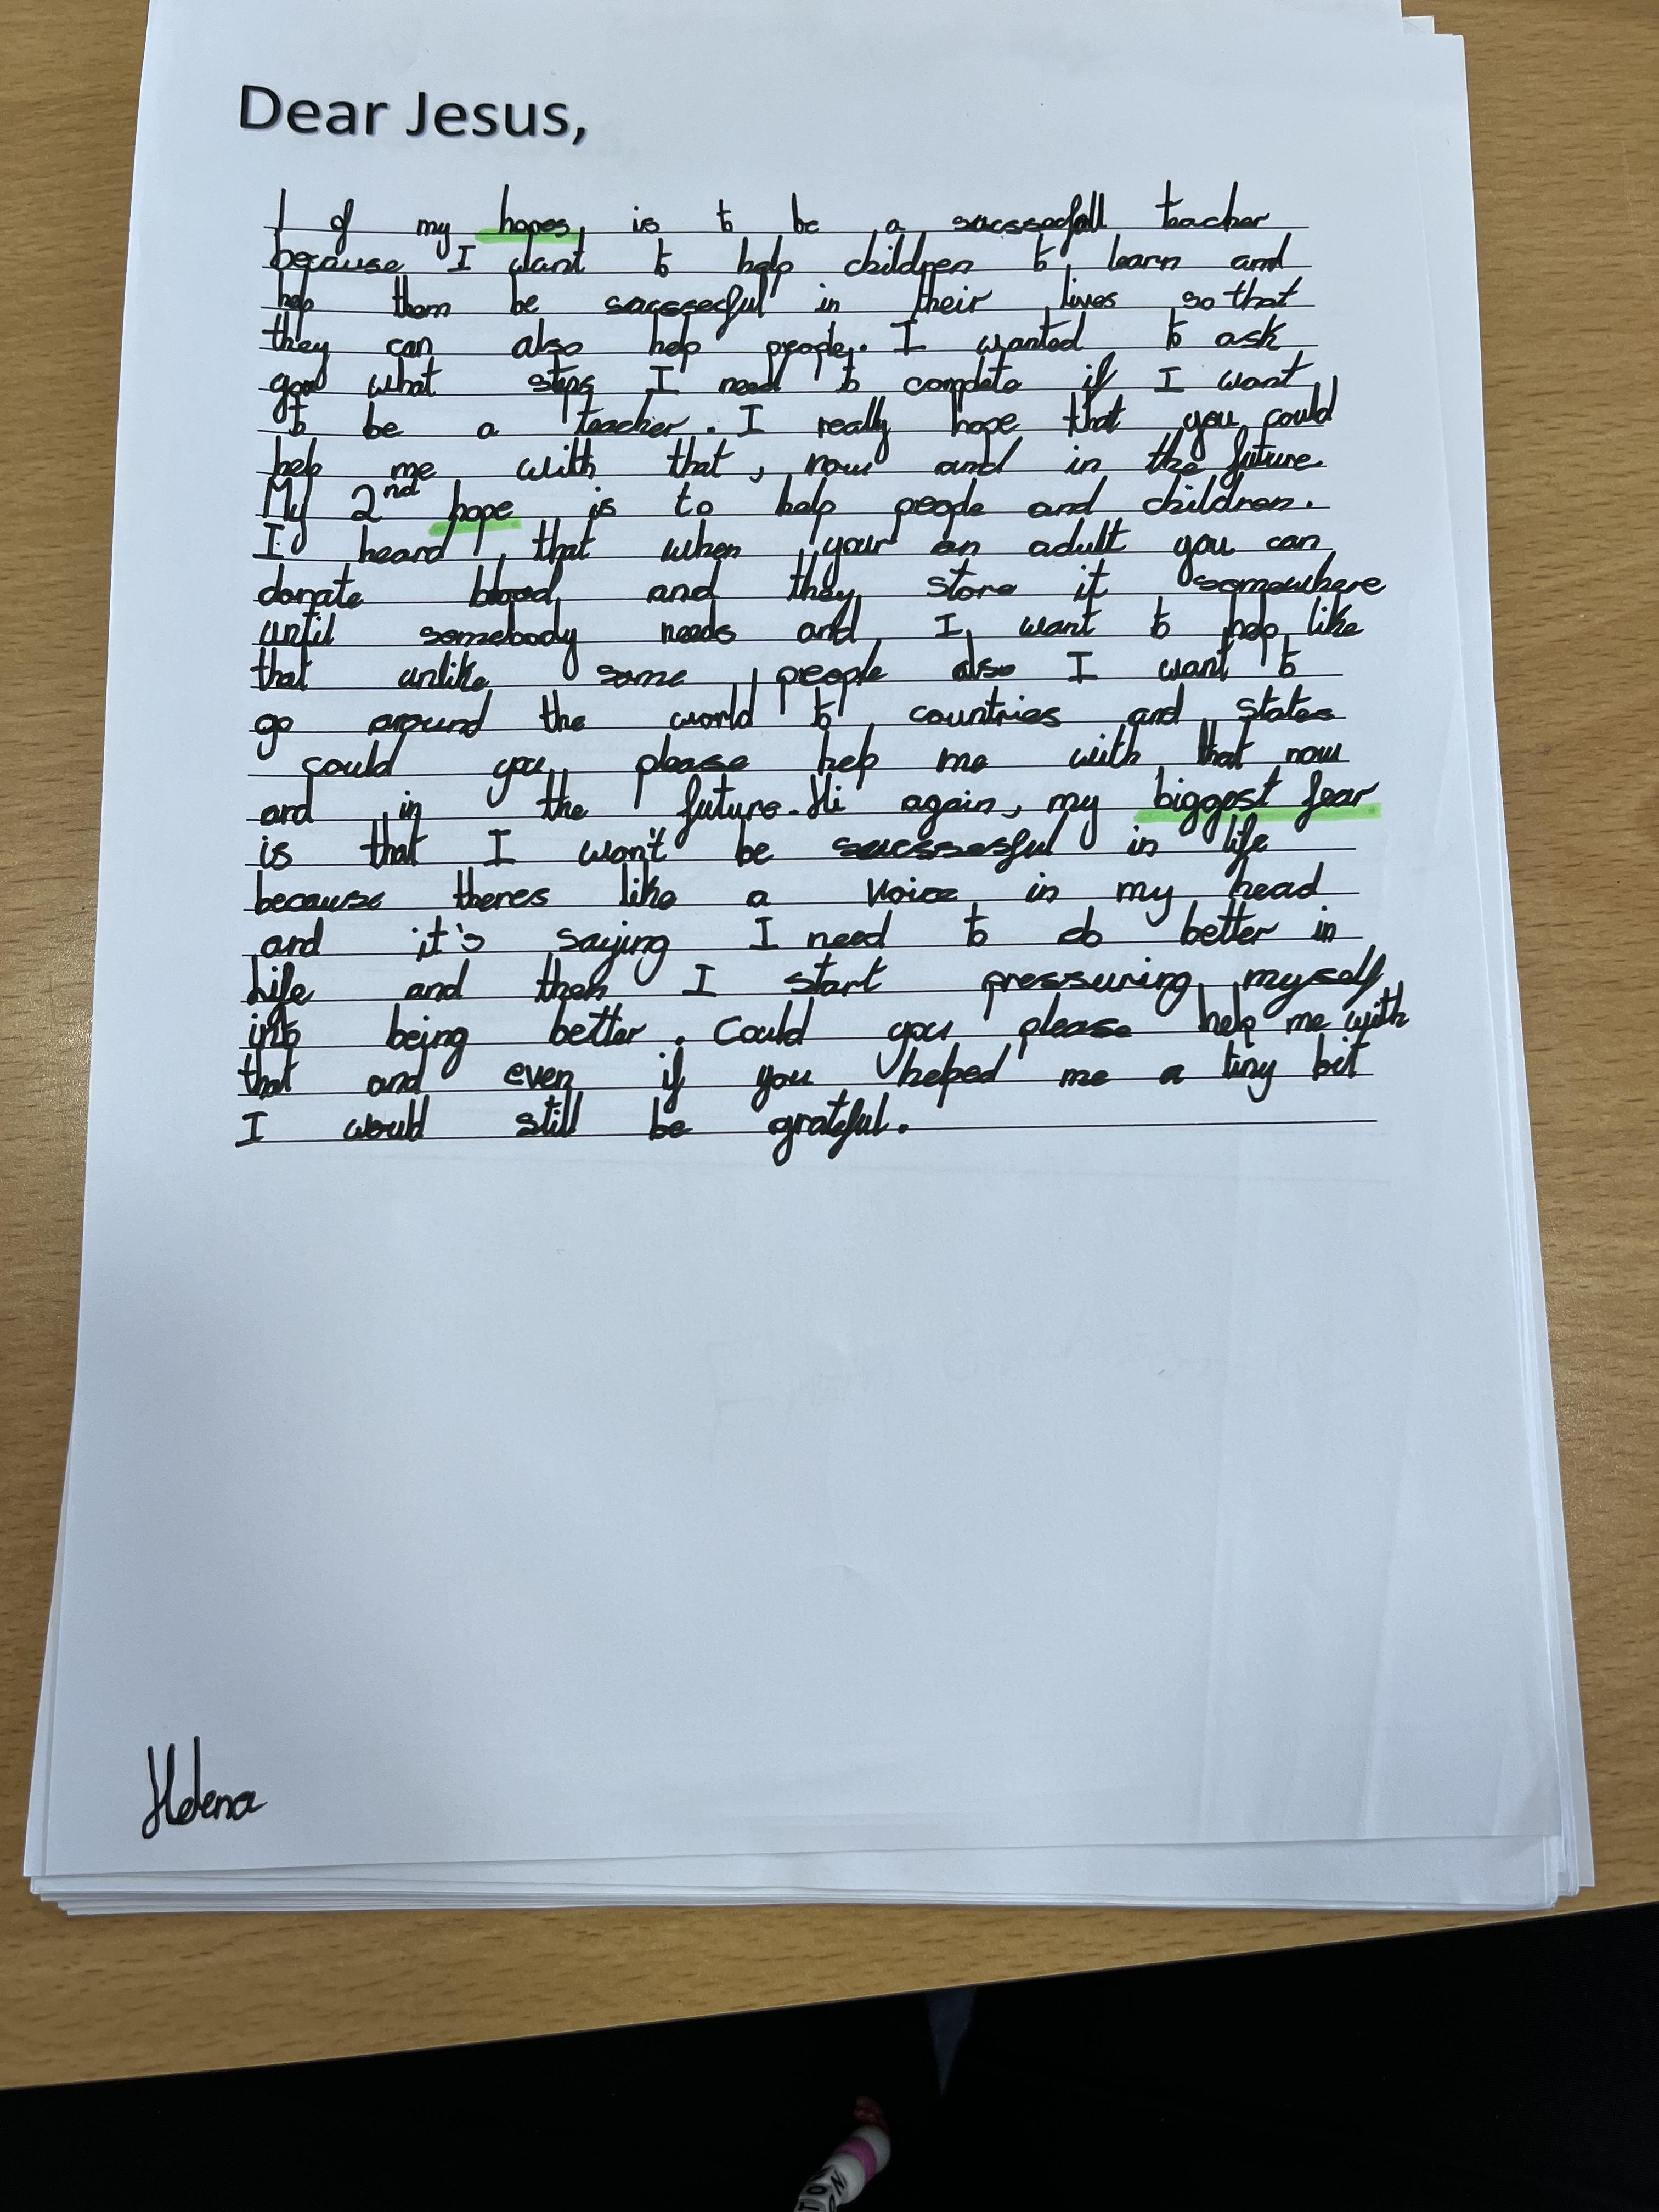 Dear Jesus,
1 of my hopes is to be a sacssesfall teacher
because I want to help children to learn and
help them be sacssesful in their lives so that
they can also help people. I wanted to ask
god what steps I need to complete if I want
to be a teacher. I really hope that you could
help me with that, now and in the future.
My 2nd hope is to help people and children.
I heard that when your an adult you can
donate blood and they store it somewhere
until somebody needs and I want to help like
that unlike some people also I want to
go around the world to countries and states
could you please help me with that now
and in the future. Hi again, my biggest fear
is that I won't be sucssesful in life
because theres like a voice in my head
and it's saying I need to do better in
life and then I start pressuring myself
into being better. Could you please help me with
that and even if you helped me a tiny bit
I would still be grateful.
Helena